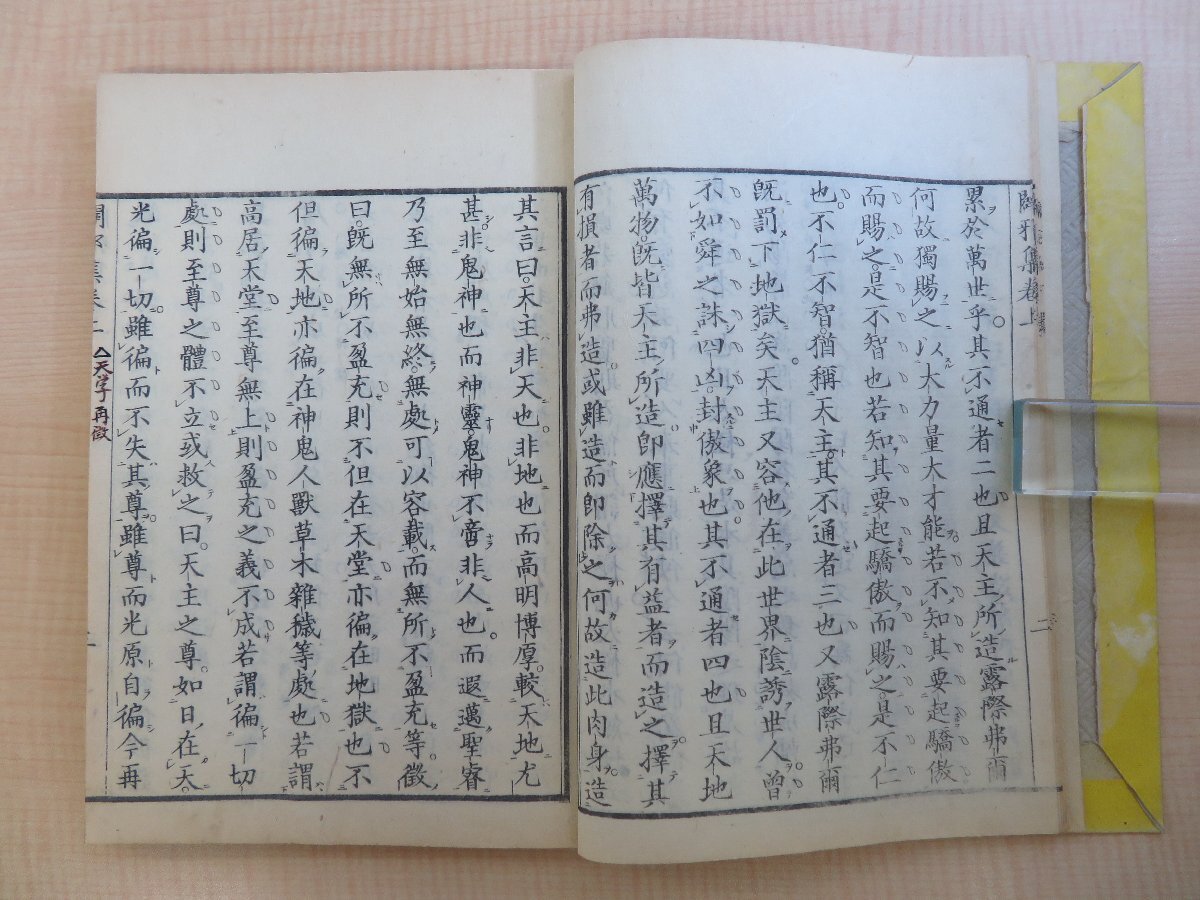 闢邪集卷上
累於萬世乎其不通者二也且天主所造露際弗爾
何故獨賜之以大力量大才能若不知其要起驕傲
而賜之是不智也若知其要起驕傲而賜之是不仁
也不仁不智猶稱天主其不通者三也又露際弗爾
既罰下地獄矣天主又容他在此世界陰誘世人曾
不如舜之誅四凶封傲象也其不通者四也且天地
萬物既皆天主所造即應擇其有益者而造之擇其
有損者而弗造或雖造而即除之何故造此肉身造
其言曰天主非天也非地也而高明博厚較天地尤
甚非鬼神也而神靈鬼神不啻非人也而遐邁聖睿
乃至無始無終無處可以容載而無所不盈充等徵
曰既無所不盈充則不但在天堂亦徧在地獄也不
但徧天地亦徧在神鬼人獸草木雜穢等處也若謂
高居天堂至尊無上則盈充之義不成若謂徧一切
處則至尊之體不立或救之曰天主之尊如日在天
光徧一切雖徧而不失其尊雖尊而光原自徧今再
△天字再徵